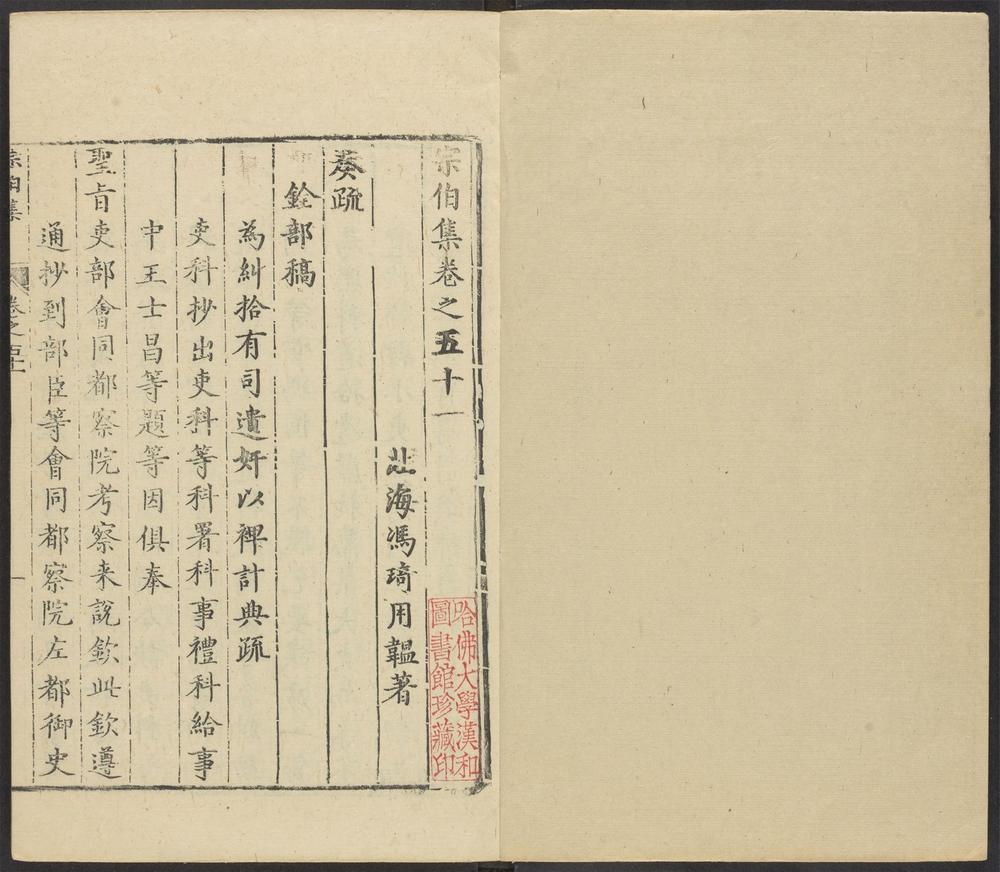 宗伯集卷之五十一
北海馮琦用韞著
奏疏
銓部稿
為糾拾有司遺奸以裨計典疏
吏科抄出吏科等科署科事禮科給事
中王士昌等題等因俱奉
聖旨吏部會同都察院考察来說欽此欽遵
通抄到部臣等會同都察院左都御史
宗伯集
卷之五十一
一
哈佛大學漢和
圖書館珍藏印